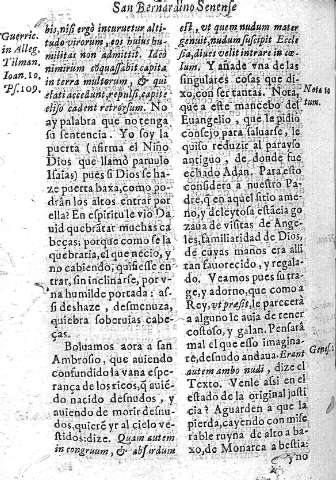 San Bernardino Senense
Guerric.
in Alleg.
Tilman.
Ioan. 10.
Ps. 109.
bis, nisi ergò incuruetur alti-
tudo virorum, eos huius hu-
militas non admittit. Ideò
nimirum cōquassabit capita
in terra multorum, & qui
elati accedunt, repulsi, capite
eliso cadent retrorsum. No
ay palabra que no tenga
su sentencia. Yo soy la
puerta (afirma el Niño
Dios que llamò paruulo
Isaias) pues si Dios se ha-
ze puerta baxa, como po-
dràn los altos entrar por
ella? En espiritu le vio Da
uid quebrãtar muchas ca
beças; porque como se la
quebraria, el que necio, y
no cabiendo, quisiesse en-
trar, sin inclinarse, por v-
na humilde portada: as-
si deshaze, desmenuza,
quiebra soberuias cabe-
ças.
Boluamos aora a san
Ambrosio, que auiendo
confundido la vana espe-
rança de los ricos, q̃ auiē
do nacido desnudos, y
auiendo de morir desnu-
dos, quierē yr al cielo ve-
stidos: dize. Quam autem
in congruum, & absurdum
est, vt quem nudum mater
genuit, nudum suscipit Eccle
sia, diues velit intrare in cœ-
lum. Y añade vna de las
singulares cosas que di-
xo, con ser tantas. Nota,
que a este mancebo del
Euangelio, que le pidio
consejo para saluarse, le
quiso reduzir al parayso
antiguo, de donde fue
echado Adan. Para esto
considera a nuestro Pa-
dre, q̃ en aquel sitio ame-
no, y deleytosa estãcia go
zaua de visitas de Ange-
les, familiaridad de Dios,
de cuyas manos era alli
tan fauorecido, y regala-
do. Veamos pues su tra-
ge, y adorno, que como a
Rey, vt præsit, le parecerà
a alguno le auia de tener
costoso, y galan. Pensarà
mal el que esso imagina-
re, desnudo andaua. Erant
autem ambo nudi, dize el
Texto. Venle assi en el
estado de la original justi
cia? Aguarden a que la
pierda, cayendo con mise
rable ruyna de alto a ba-
xo, de Monarca a bestia:
y no
Nota lo
tum.
Genes.